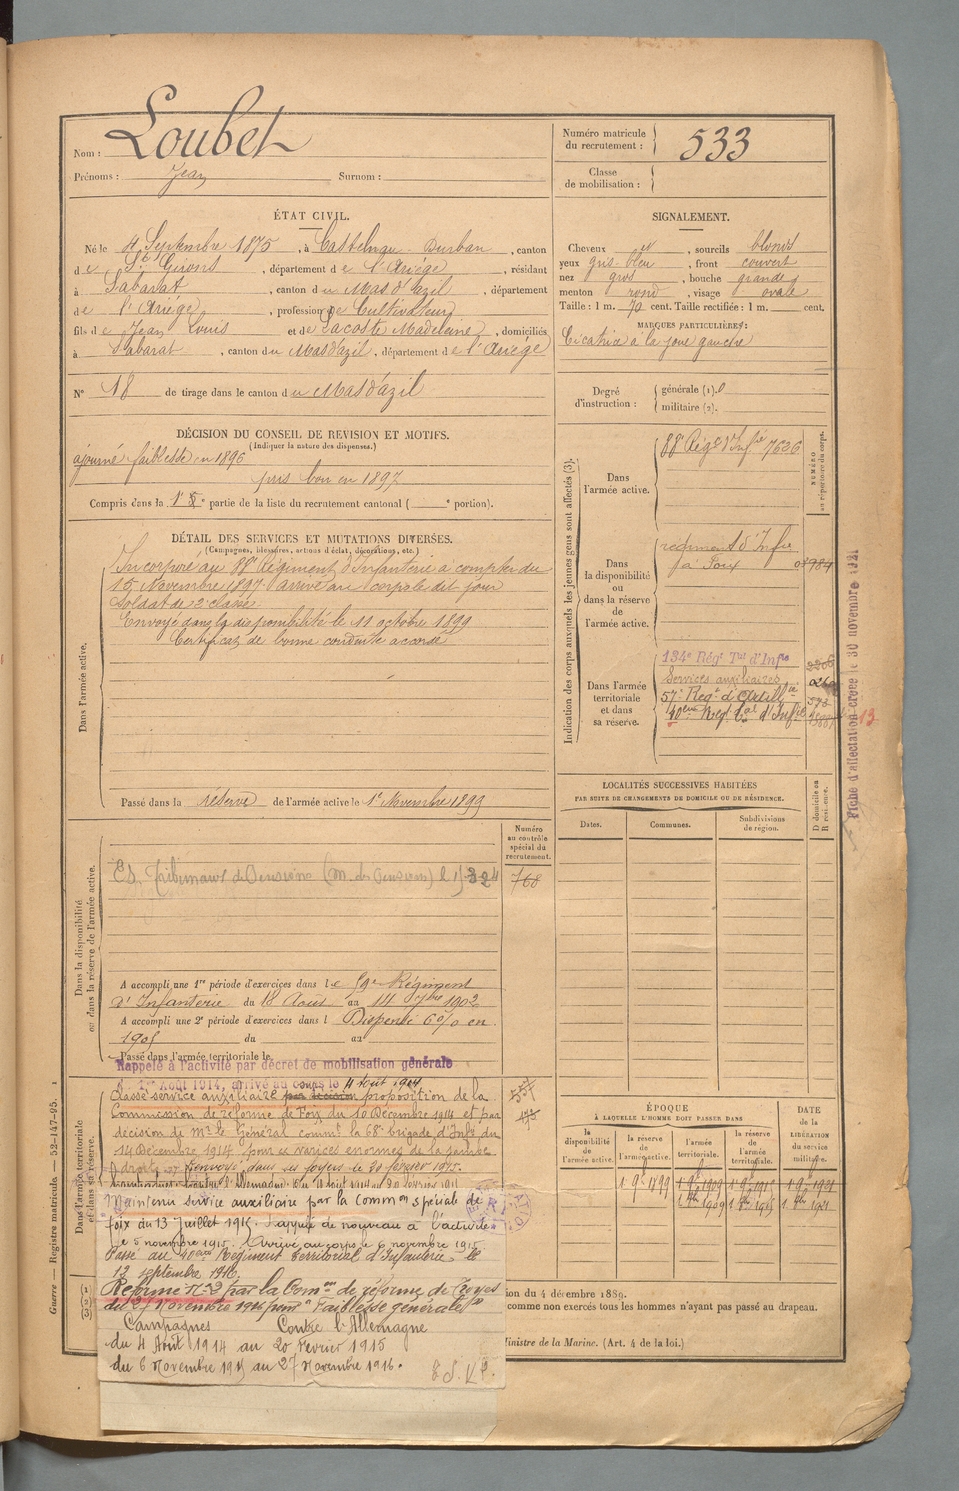 Nom : Loubet
Prénoms : Jean Surnom :
Numéro matricule du recrutement : 533
Classe de mobilisation :
ÉTAT CIVIL.
Né le 4 Septembre 1875, à Castelnau-Durban, canton
de St Girons, département de l'Ariége, résidant
à Sabarat, canton du Mas d'azil, département
de l'Ariége, profession de Cultivateur
fils de Jean Louis et de Lacoste Madeleine, domiciliés
à Sabarat, canton du Mas d'azil, département de l'Ariége
N° 18 de tirage dans le canton du Mas d'azil
SIGNALEMENT.
Cheveux et, sourcils blonds
yeux gris-bleu, front couvert
nez gros, bouche grande
menton rond, visage ovale
Taille : 1 m. 70 cent. Taille rectifiée : 1 m. cent.
MARQUES PARTICULIÈRES :
Cicatrice à la joue gauche
Degré d'instruction : générale (1).
militaire (2).
DÉCISION DU CONSEIL DE REVISION ET MOTIFS.
(Indiquer la nature des dispenses.)
ajourné faiblesse en 1896
pris bon en 1897
Compris dans la 1e partie de la liste du recrutement cantonal ( e portion).
DÉTAIL DES SERVICES ET MUTATIONS DIVERSES.
(Campagnes, blessures, actions d'éclat, décorations, etc.)
Dans l'armée active.
Incorporé au 88e Régiment d'Infanterie à compter du
15 Novembre 1897 arrivé au corps le dit jour
Soldat de 2e classe
Envoyé dans la disponibilité le 11 octobre 1899
Certificat de bonne conduite accordé
Passé dans la réserve de l'armée active le 1er Novembre 1899
Indication des corps auxquels les jeunes gens sont affectés (3).
NUMÉRO au répertoire du corps.
Dans l'armée active.
88e Régt d'Infie 7626
Dans la disponibilité ou dans la réserve de l'armée active.
régiment d'Infie
à Foix
Dans l'armée territoriale et dans sa réserve.
134e Régt Tal d'Infie
Services auxiliaires
57e Regt d'Artillie
40eme Reg. Tal d'Infie
Fiche d'affectation créée le 30 novembre 1921
13
LOCALITÉS SUCCESSIVES HABITÉES
PAR SUITE DE CHANGEMENTS DE DOMICILE OU DE RÉSIDENCE.
Dates. Communes. Subdivisions de région. D domicile ou R résidence.
Dans la disponibilité ou dans la réserve de l'armée active.
Numéro au contrôle spécial du recrutement.
768
A accompli une 1re période d'exercices dans le 59e Régiment
d'Infanterie du 18 Août au 14 7bre 1902
A accompli une 2e période d'exercices dans l Dispensé 6 % en
1905 du au
Passé dans l'armée territoriale le
Rappelé à l'activité par décret de mobilisation générale
du 1er Août 1914, arrivé au corps le 4 août 1914
Dans l'armée territoriale et dans sa réserve.
Classé service auxiliaire par décision proposition de la
Commission de réforme de Foix du 10 Décembre 1914 et par
décision de Mr le Général commt la 68e brigade d'Infie du
14 Décembre 1914 pour varices énormes de la jambe
droite. Renvoyé dans ses foyers le 20 février 1915.
Maintenu service auxiliaire par la Common spéciale de
foix du 13 Juillet 1915. Rappelé de nouveau à l'activité
le 5 novembre 1915. Arrivé au corps le 6 novembre 1915.
Passé au 40eme Régiment Territorial d'Infanterie le
12 septembre 1916.
Réformé N° 2 par la Comon de réforme de Troyes
du 27 Novembre 1916 pour "Faiblesse générale"
Campagnes Contre l'Allemagne
du 4 Août 1914 au 20 Février 1915
du 6 Novembre 1915 au 27 Novembre 1916.
ÉPOQUE
À LAQUELLE L'HOMME DOIT PASSER DANS
la disponibilité de l'armée active. la réserve de l'armée active. l'armée territoriale. la réserve de l'armée territoriale.
DATE de la LIBÉRATION du service militaire.
1 9bre 1899
ion du 4 décembre 1889.
comme non exercés tous les hommes n'ayant pas passé au drapeau.
Ministre de la Marine. (Art. 4 de la loi.)
Guerre — Registre matricule. — 52-147-95.
(1)
(2)
(3)